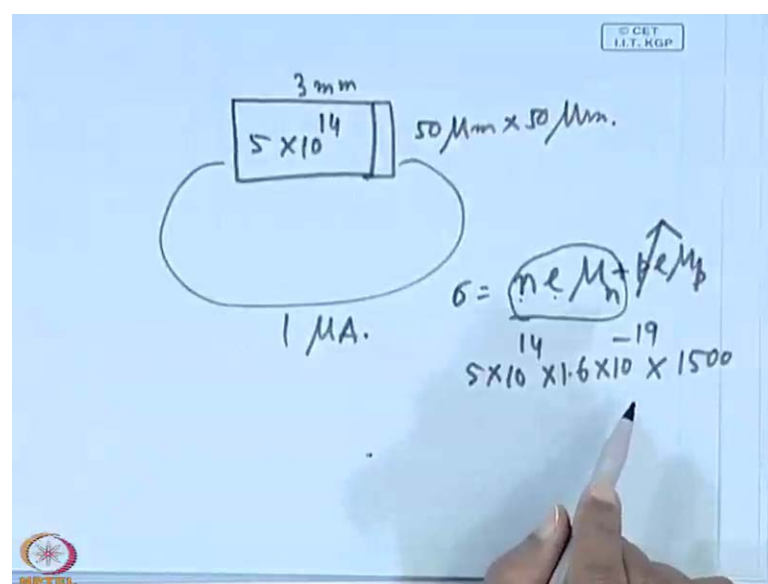 © CET
I.I.T. KGP
3 mm
5 × 10^14
50 μm × 50 μm.
σ = n e μn + p e μp
1 μA.
5 × 10^14 × 1.6 × 10^-19 × 1500